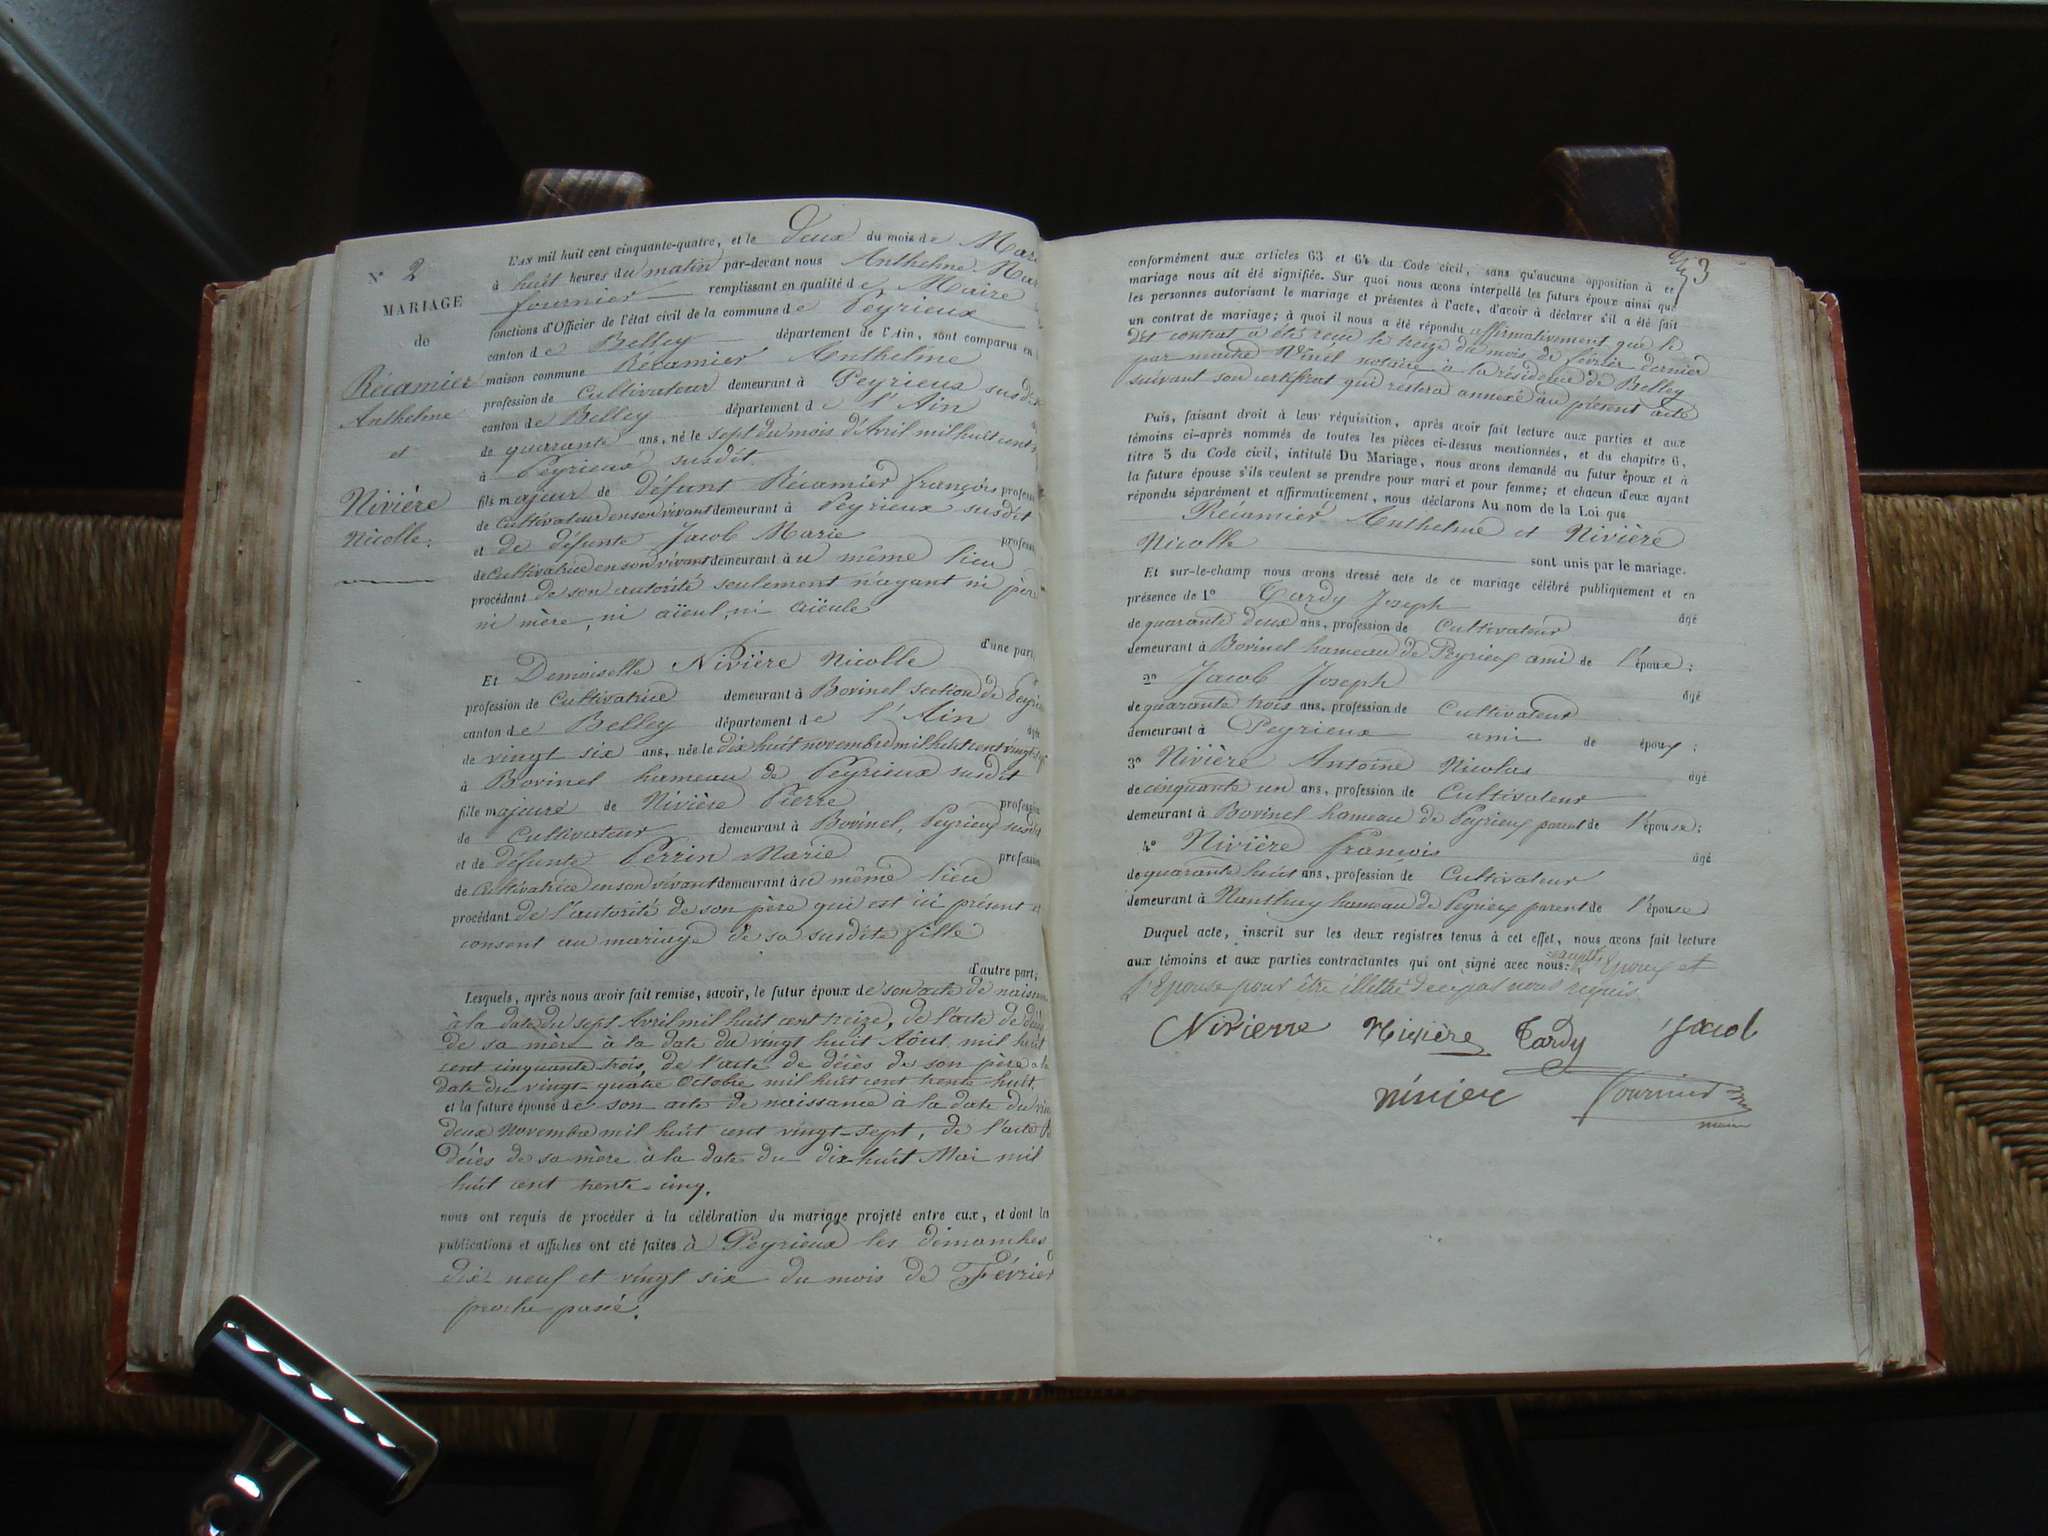 N° 2
MARIAGE
de
Récamier
Anthelme
et
Nivière
Nicolle.
L'AN mil huit cent cinquante-quatre, et le Deux du mois de Mars
à huit heures du matin par-devant nous Anthelme
fournier remplissant en qualité de Maire
fonctions d'Officier de l'état civil de la commune de Peyrieux
canton de Belley département de l'Ain, sont comparus en
maison commune Récamier Anthelme
profession de Cultivateur demeurant à Peyrieux susdit
canton de Belley département de l'Ain
de quarante ans, né le sept du mois d'Avril mil huit cent
à Peyrieux susdit.
fils majeur de défunt Récamier françois profession
de Cultivateur en son vivant demeurant à Peyrieux susdit
et de défunte Jacob Marie profession
de Cultivatrice en son vivant demeurant au même lieu
procédant de son autorité seulement n'ayant ni père
ni mère, ni aïeul, ni aïeule
d'une part,
Et Demoiselle Nivière Nicolle
profession de Cultivatrice demeurant à Bovinel section de Peyrieux
canton de Belley département de l'Ain âgée
de vingt six ans, née le dix huit novembre mil huit cent vingt sept
à Bovinel hameau de Peyrieux susdit
fille majeure de Nivière Pierre profession
de Cultivateur demeurant à Bovinel, Peyrieux susdit
et de défunte Perrin Marie profession
de Cultivatrice en son vivant demeurant au même lieu
procédant de l'autorité de son père qui est ici présent et
consent au mariage de sa susdite fille
d'autre part;
Lesquels, après nous avoir fait remise, savoir, le futur époux de son acte de naissance
à la date du sept Avril mil huit cent treize, de l'acte de décès
de sa mère à la date du vingt huit Août mil huit
cent cinquante trois, de l'acte de décès de son père à la
date du vingt-quatre Octobre mil huit cent trente huit,
et la future épouse de son acte de naissance à la date du vingt
deux Novembre mil huit cent vingt-sept, de l'acte de
décès de sa mère à la date du dix-huit Mai mil
huit cent trente-cinq.
nous ont requis de procéder à la célébration du mariage projeté entre eux, et dont les
publications et affiches ont été faites à Peyrieux les dimanches
dix neuf et vingt six du mois de Février
proche passé.
3
conformément aux articles 63 et 64 du Code civil, sans qu'aucune opposition à ce
mariage nous ait été signifiée. Sur quoi nous avons interpellé les futurs époux ainsi que
les personnes autorisant le mariage et présentes à l'acte, d'avoir à déclarer s'il a été fait
un contrat de mariage; à quoi il nous a été répondu affirmativement que le
dit contrat a été reçu le treize du mois de février dernier
par maitre Vinel notaire à la résidence de Belley
suivant son certificat qui restera annexé au présent acte
Puis, faisant droit à leur réquisition, après avoir fait lecture aux parties et aux
témoins ci-après nommés de toutes les pièces ci-dessus mentionnées, et du chapitre 6,
titre 5 du Code civil, intitulé Du Mariage, nous avons demandé au futur époux et à
la future épouse s'ils veulent se prendre pour mari et pour femme; et chacun d'eux ayant
répondu séparément et affirmativement, nous déclarons Au nom de la Loi que
Récamier Anthelme et Nivière
Nicolle sont unis par le mariage.
Et sur-le-champ nous avons dressé acte de ce mariage célébré publiquement et en
présence de 1° Tardy Joseph âgé
de quarante deux ans, profession de Cultivateur
demeurant à Bovinel hameau de Peyrieux ami de l'époux;
2° Jacob Joseph âgé
de quarante trois ans, profession de Cultivateur
demeurant à Peyrieux ami de époux;
3° Nivière Antoine Nicolas âgé
de cinquante un ans, profession de Cultivateur
demeurant à Bovinel hameau de Peyrieux parent de l'épouse;
4° Nivière françois âgé
de quarante huit ans, profession de Cultivateur
demeurant à Nanthuy hameau de Peyrieux parent de l'épouse
Duquel acte, inscrit sur les deux registres tenus à cet effet, nous avons fait lecture
aux témoins et aux parties contractantes qui ont signé avec nous: excepté l'Epoux et
L'Epouse pour être illettré de ce par nous requis.
Nivierre Nivière Tardy Jacob
nivier Fournier
maire